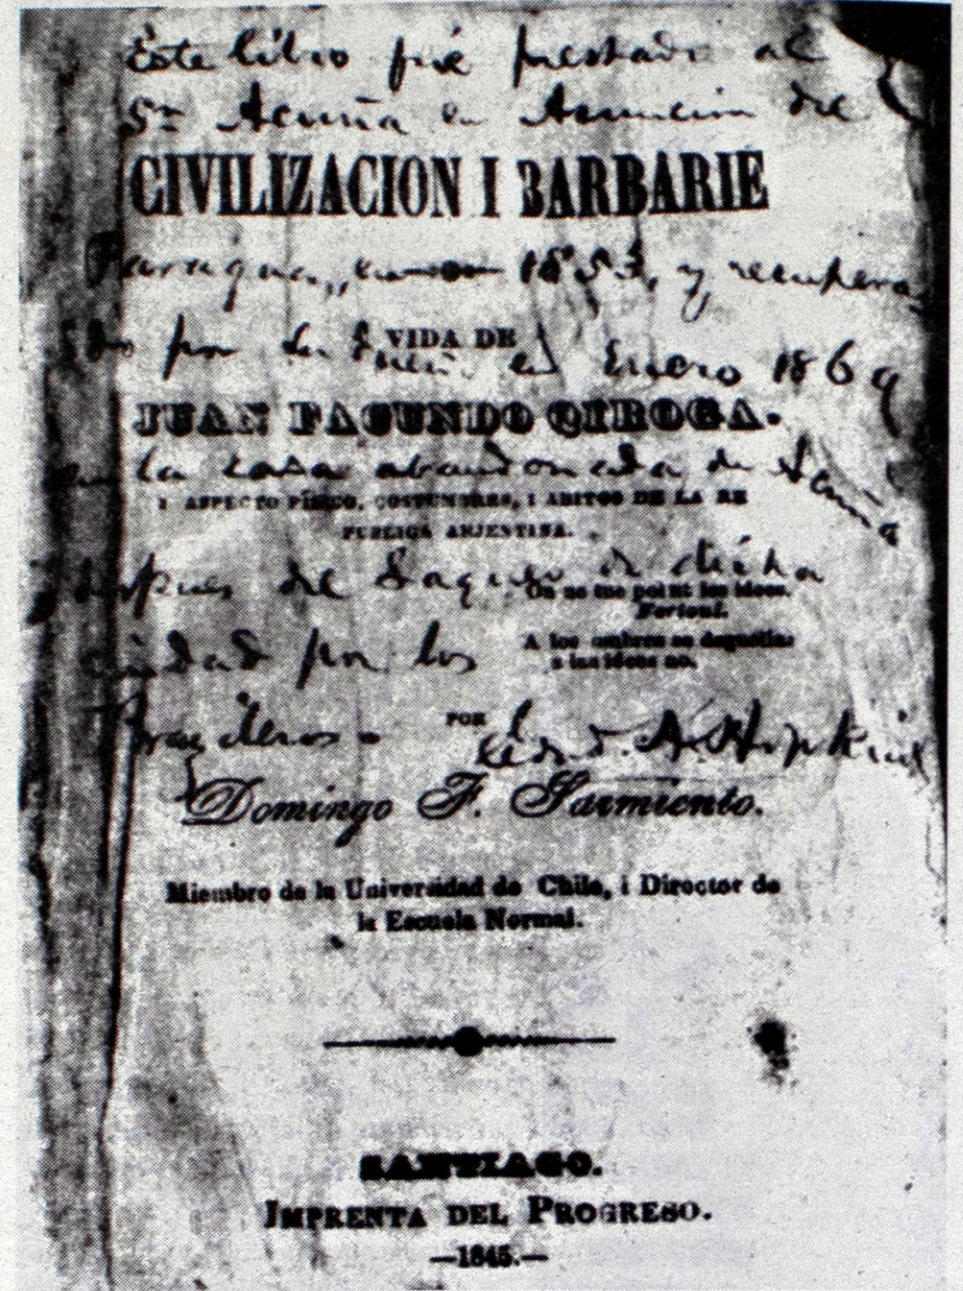 Este libro fué prestado al
Sr. Acuña en Asuncion del
CIVILIZACION I BARBARIE
Paraguay, en 1853, y recupera
VIDA DE
do por su dueño en Enero 1869
JUAN FACUNDO QIROGA.
en la casa abandonada de Acuña
I ASPECTO FISICO, COSTUMBRES, I ABITOS DE LA RE
PUBLICA ARJENTINA.
despues del Saqueo de dicha
On ne tue point les idees.
Fortoul.
A los ombres se deguella:
a las ideas no.
ciudad por los
Brasileros.
POR
Edwd. A. Hopkins
Domingo F. Sarmiento.
Miembro de la Universidad de Chile, i Director de
la Escuela Normal.
SANTIAGO.
IMPRENTA DEL PROGRESO.
—1845.—